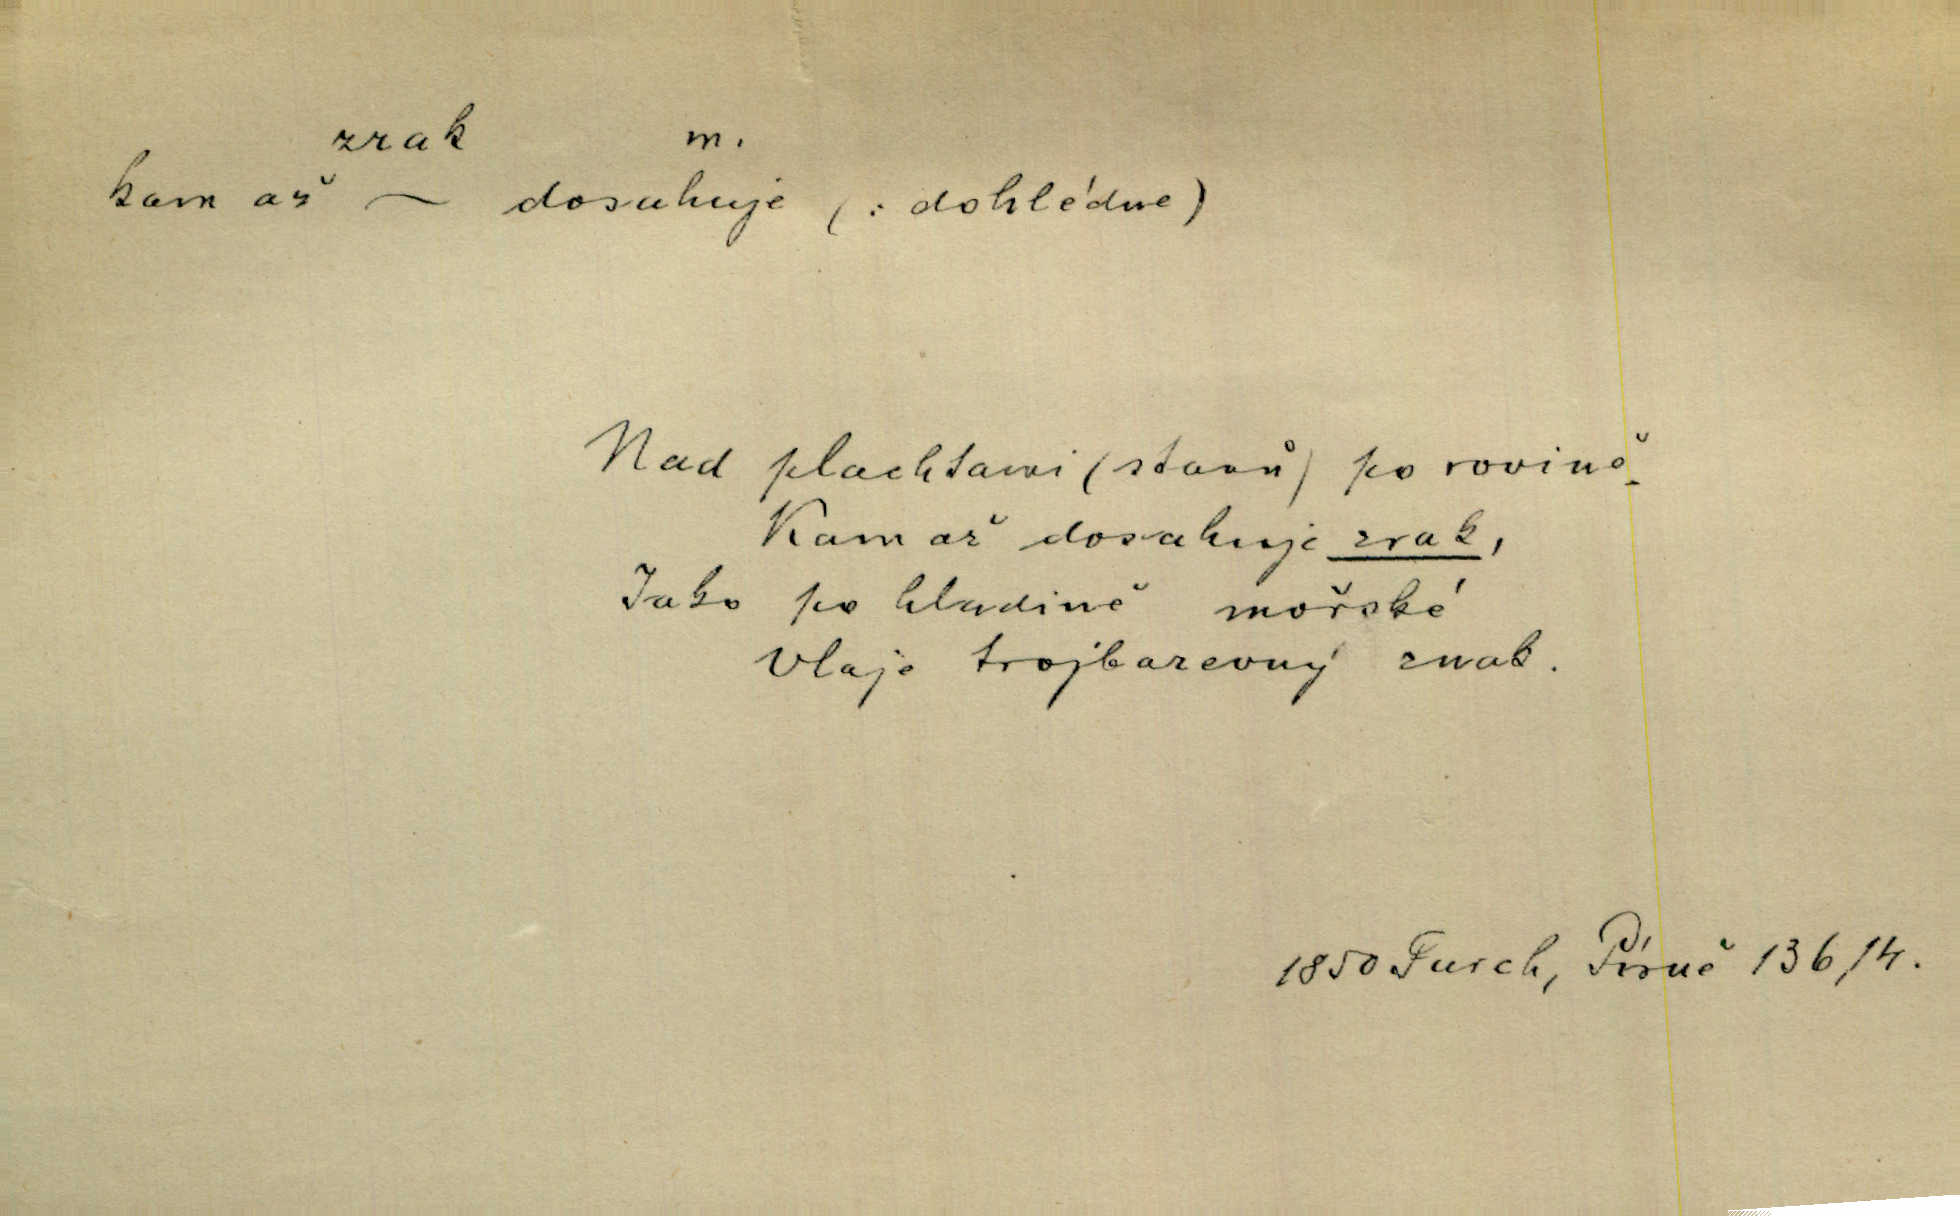 zrak m.
kam až ~ dosahuje (: dohlédne)
Nad plachtami (stanů) po rovině
Kam až dosahuje zrak,
Jako po hladině mořské
Vlaje trojbarevný znak.
1850 Furch, Písně 136/4.